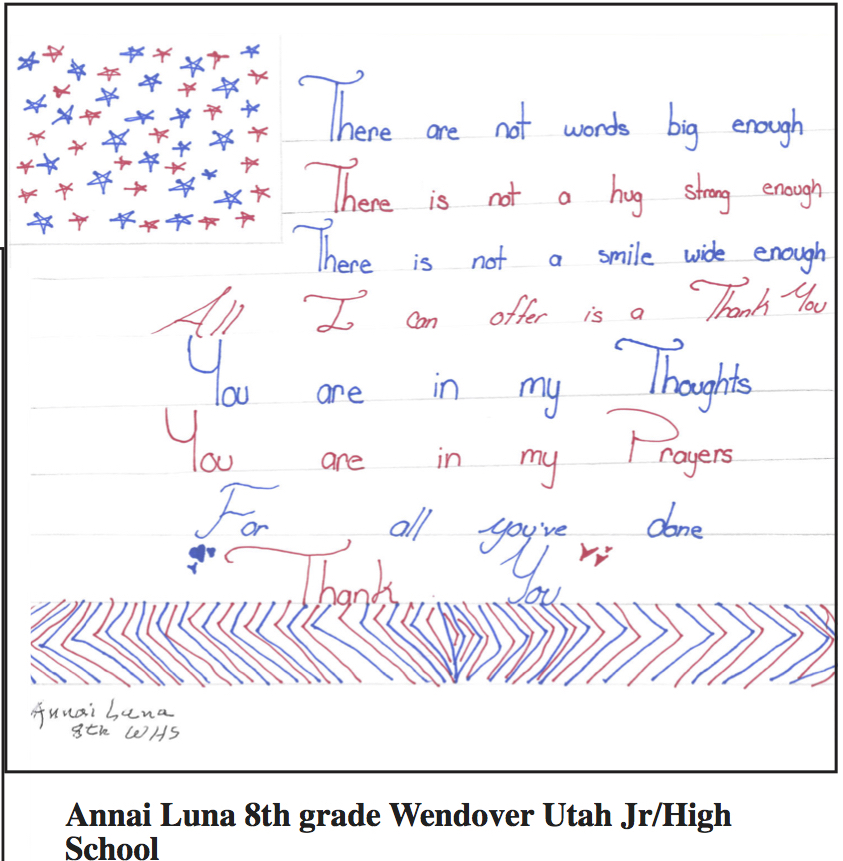 There are not words big enough
There is not a hug strong enough
There is not a smile wide enough
All I can offer is a Thank You
You are in my Thoughts
You are in my Prayers
For all you've done
Thank You
Annai Luna
8th WHS
Annai Luna 8th grade Wendover Utah Jr/High
School